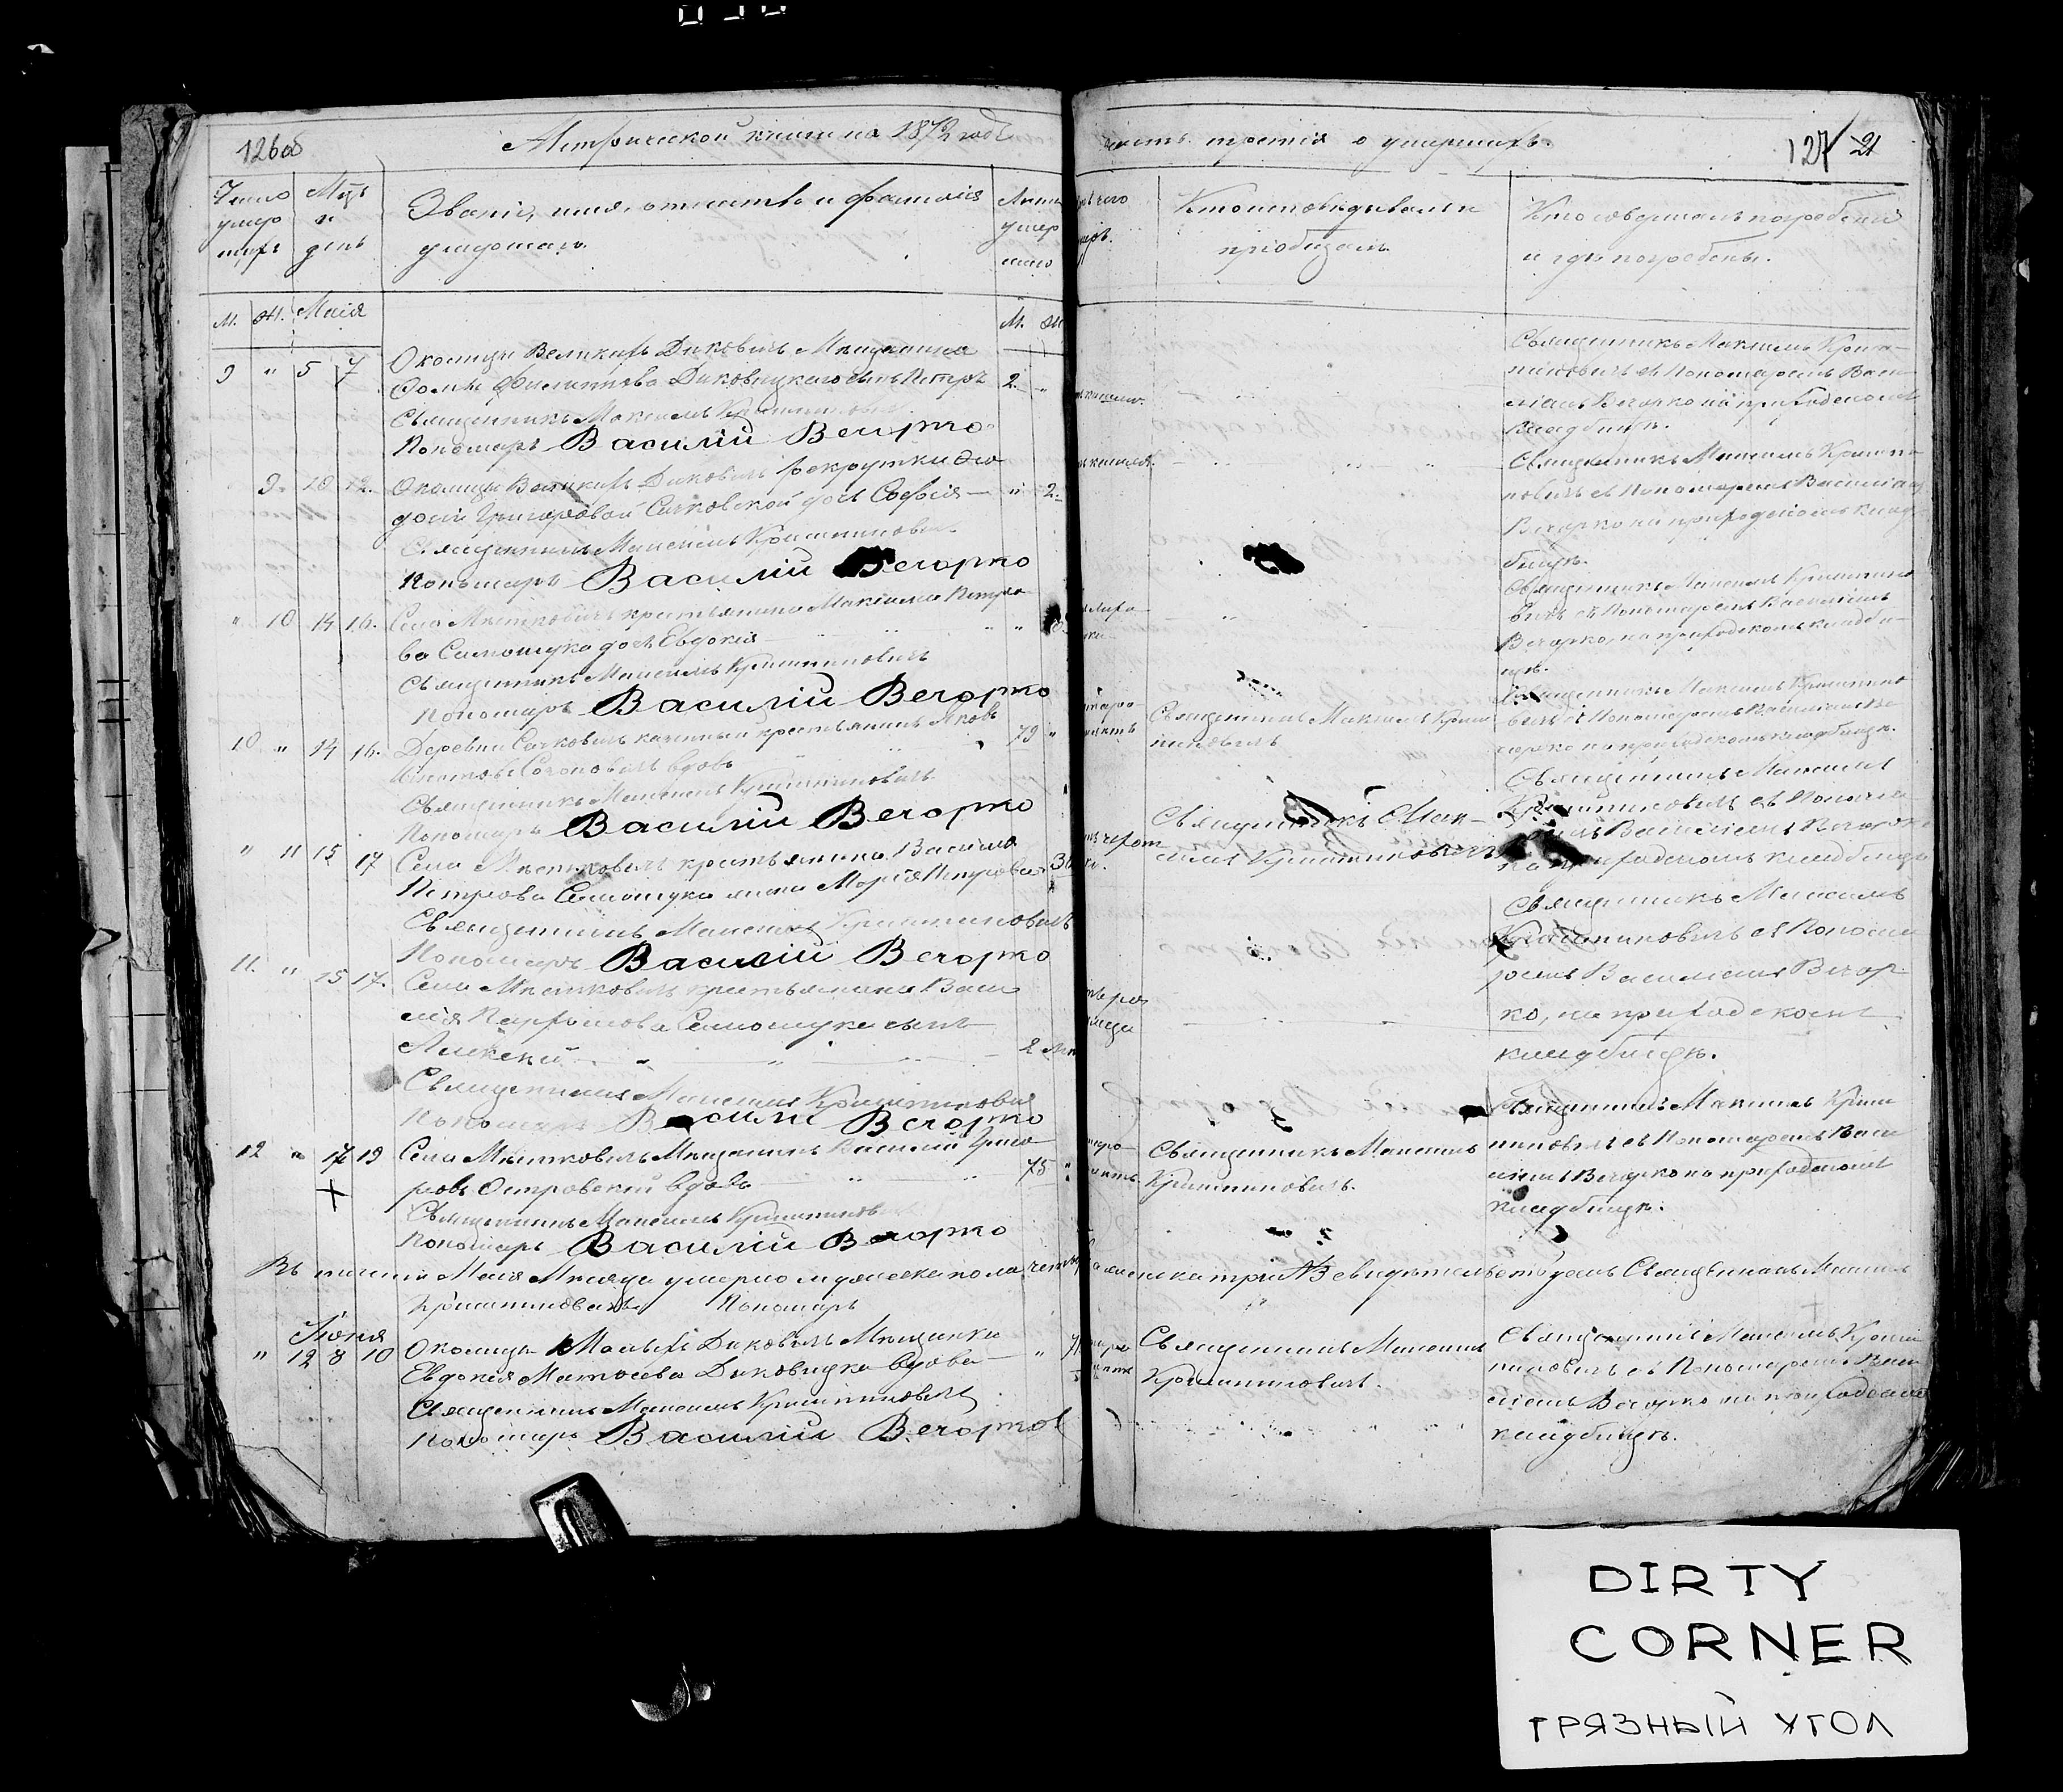 126об
Метрической книги на 1872 годъ
часть третія о умершихъ.
127 21
Число умершихъ
Мѣць и день
Званіе, имя, отчество и фамилія умершаго.
Лѣта умершаго
Кто исповѣдывалъ и пріобщалъ.
Кто совершалъ погребеніе и гдѣ погребены.
М. Ж. Маія
М. Ж.
9 " 5 7 Околицы Великихъ Диковичъ Мѣщанина
Филиппова Диковицкаго сынъ Петръ 2. "
Священникъ Максимъ Криштиновичъ
Пономарь Василій Вечорко
Священникъ Максимъ Кришти-
новичъ съ Пономаремъ Васи-
ліемъ Вечорко на приходскомъ
кладбищѣ.
9. 10 12. Околицы Великихъ Диковичъ рекрутки Ѳео
досіи Григоровой Сачковской дочь Софія — " 2.
Священникъ Максимъ Криштиновичъ
Пономарь Василій Вечорко
Священникъ Максимъ Кришти
новичъ съ Пономаремъ Василіемъ
Вечорко на приходскомъ клад-
бищѣ.
" 10 14 16. Села Мѣстковичъ крестьянина Максима Петро
ва Самошука дочь Евдокія
Священникъ Максимъ Криштиновичъ
Пономарь Василій Вечорко
Священникъ Максимъ Криштино
вичъ съ Пономаремъ Василіемъ
Вечорко, на приходскомъ кладби-
щѣ.
10 " 14 16. Деревни Сачковичъ казенный крестьянинъ Яковъ 79 "
вдовъ
Священникъ Максимъ Криштиновичъ
Пономарь Василій Вечорко
Священникъ Максимъ Кришти
новичъ
Священникъ Максимъ Криштино
вичъ съ Пономаремъ Василіемъ Ве
чорко на приходскомъ кладбищѣ.
" 11 15 17 Села Мѣстковичъ крестьянина Василія
Петрова Самошука жена Марія Петрова 30
Священникъ Максимъ Криштиновичъ
Пономарь Василій Вечорко
Священникъ Мак-
симъ Криштиновичъ
Священникъ Максимъ
Криштиновичъ съ Понома
ремъ Василіемъ Вечорко
на приходскомъ кладбищѣ
11. " 15 17. Села Мѣстковичъ крестьянина Васи
лія Самошука сынъ
Алексѣй 2
Священникъ Максимъ Криштиновичъ
Пономарь Василій Вечорко
Священникъ Максимъ
Криштиновичъ съ Понома
ремъ Василіемъ Вечор-
ко, на приходскомъ
кладбищѣ.
12 " 17 19 Села Мѣстковичъ Мѣщанинъ Василій Григо
ровъ Островскій вдовъ 75 "
Священникъ Максимъ Криштиновичъ
Пономарь Василій Вечорко
Священникъ Максимъ
Криштиновичъ.
Священникъ Максимъ Кришти
новичъ съ Пономаремъ Васи
ліемъ Вечорко на приходскомъ
кладбищѣ.
Въ теченіи Маія Мѣсяца умерло мужеска пола четыре а женска три А В свидѣтельствуемъ Священникъ Максимъ
Криштиновичъ Пономарь
Іюня
" 12 8 10 Околицы Малыхъ Диковичъ Мѣщанка
Евдокія Матѳеева Диковицка вдова "
Священникъ Максимъ Криштиновичъ
Пономарь Василій Вечорко
Священникъ Максимъ
Криштиновичъ.
Священникъ Максимъ Кришти
новичъ съ Пономаремъ Васи
ліемъ Вечорко на приходскомъ
кладбищѣ.
DIRTY
CORNER
ГРЯЗНЫЙ УГОЛ